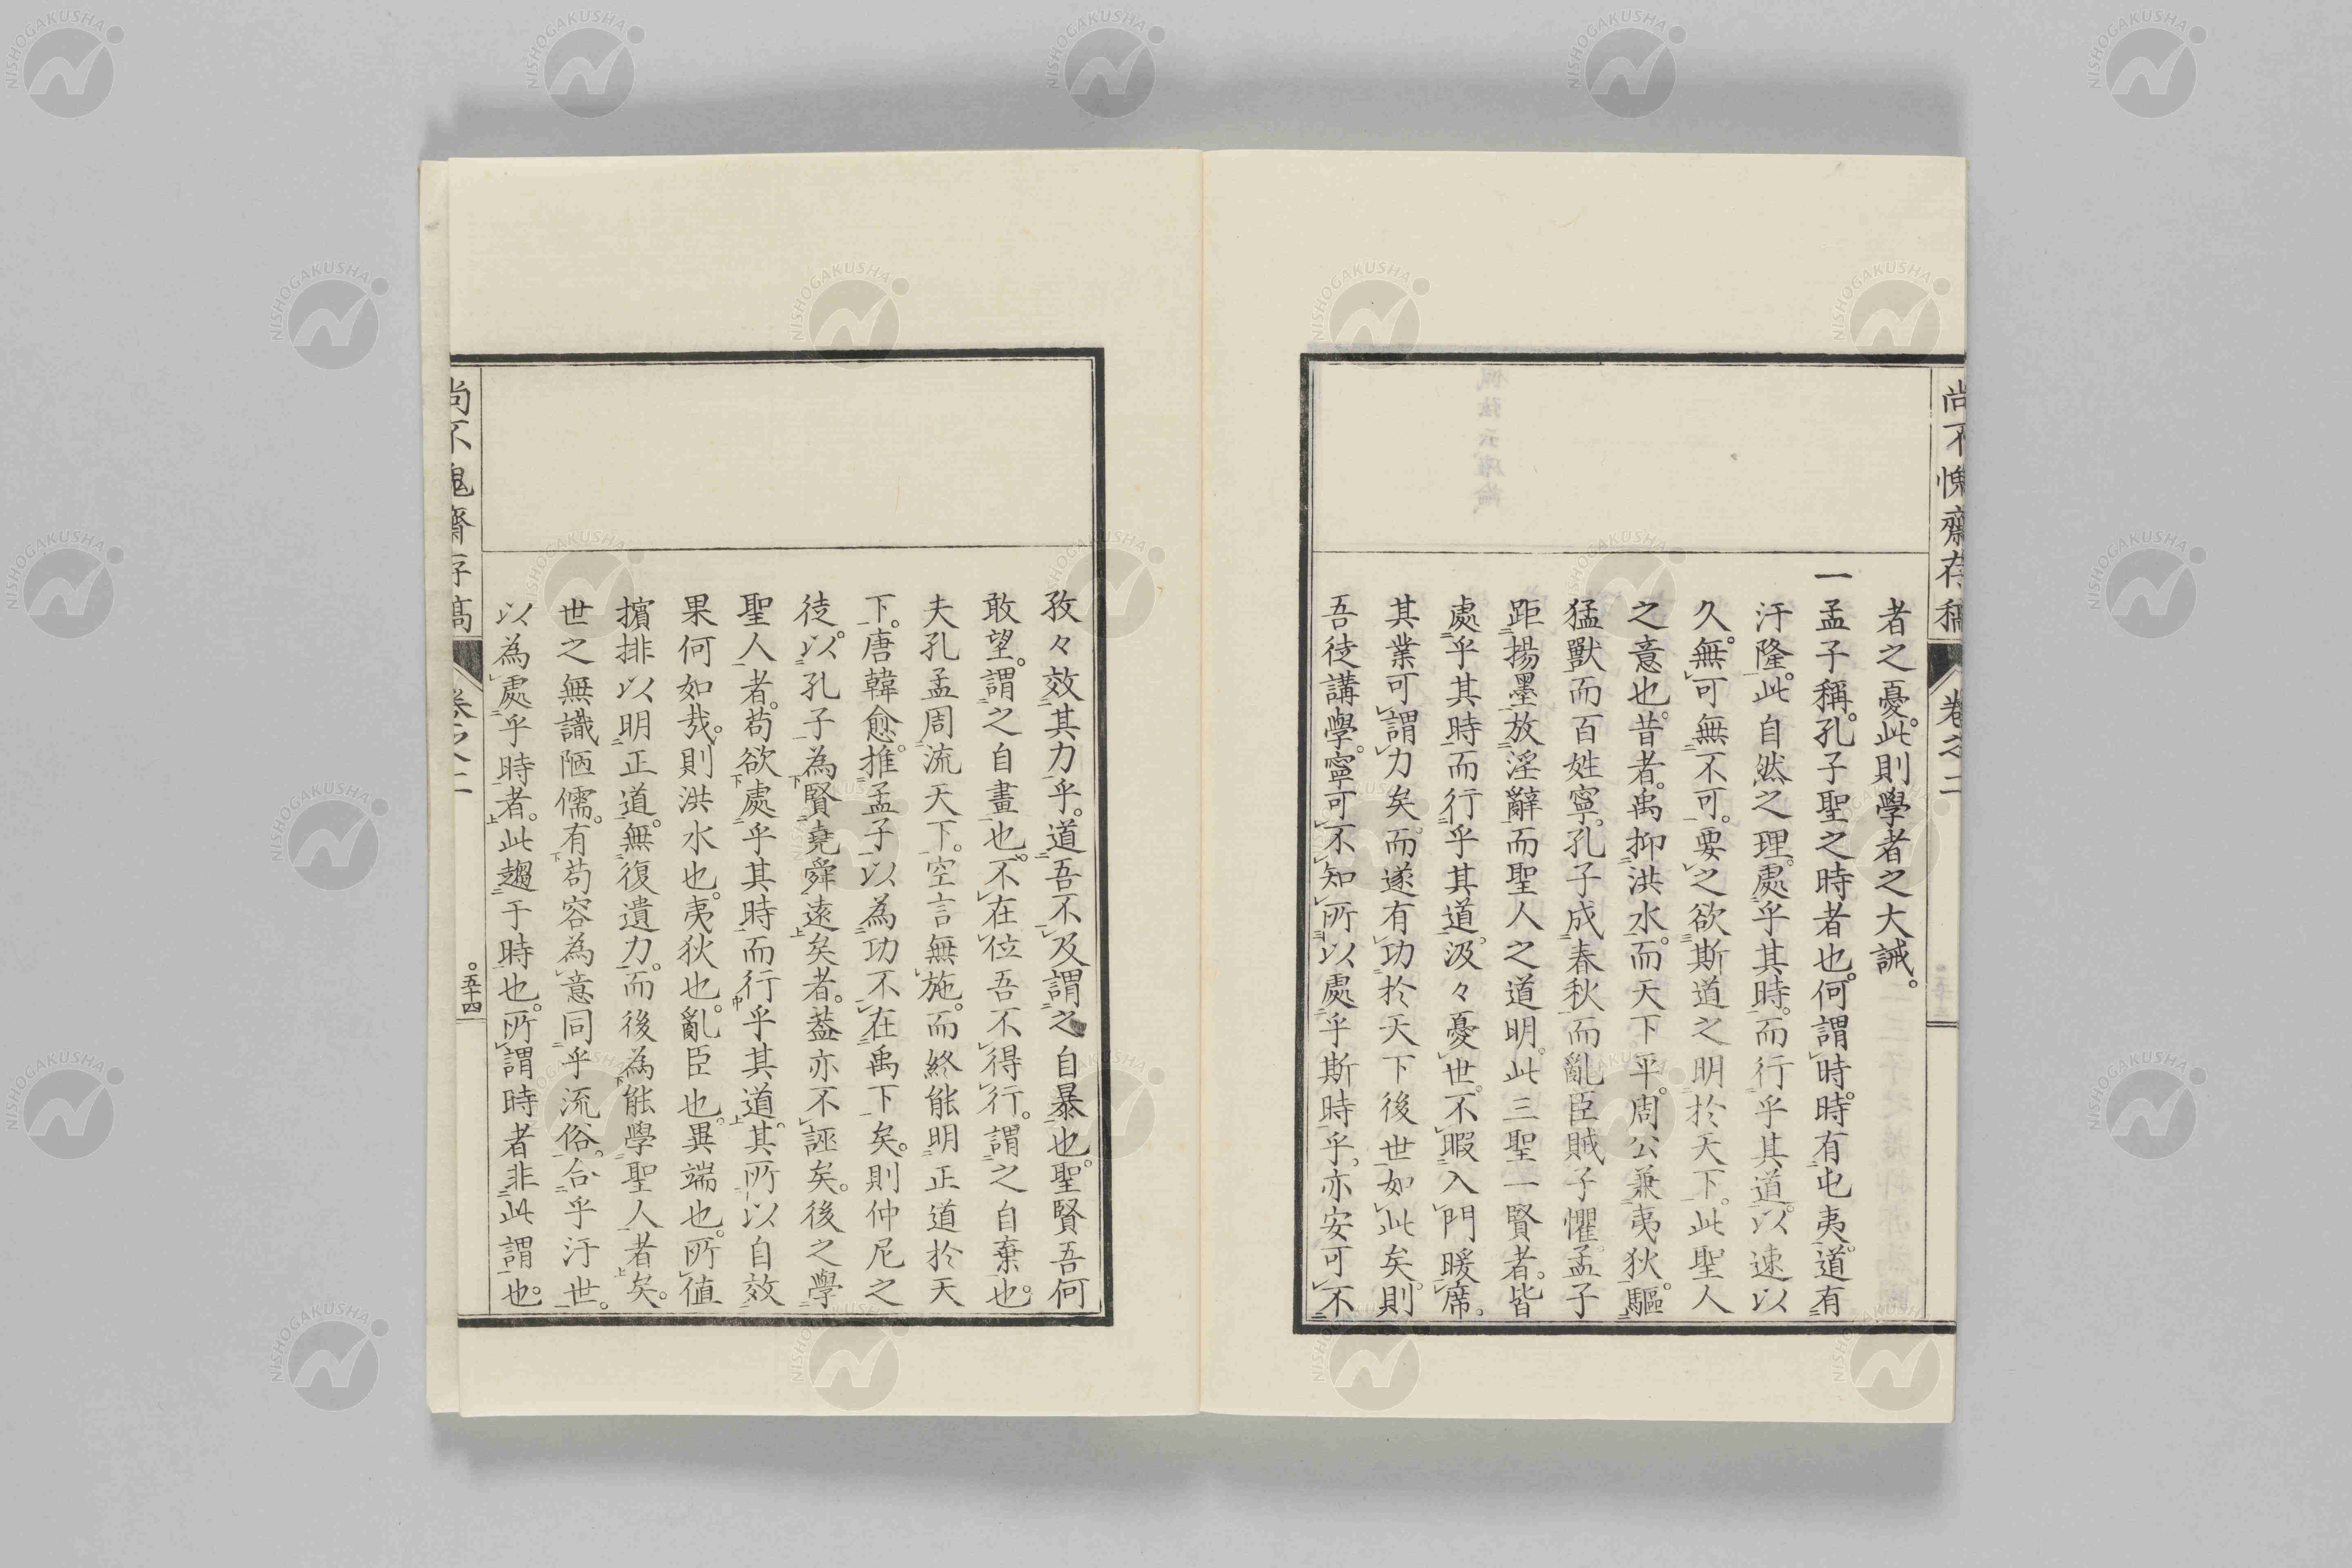 尚不愧齋存稿 卷之二
者之憂。此則學者之大誡。
一孟子稱。孔子聖之時者也。何謂時。時有屯夷。道有
汙隆。此自然之理。處乎其時。而行乎其道。以速以
久。無可無不可。要之欲斯道之明於天下。此聖人
之意也。昔者。禹抑洪水。而天下平。周公兼夷狄。驅
猛獸而百姓寧。孔子成春秋而亂臣賊子懼。孟子
距揚墨放淫辭而聖人之道明。此三聖一賢者。皆
處乎其時而行乎其道。汲々憂世。不暇入門暖席。
其業可謂力矣。而遂有功於天下後世如此矣。則
吾徒講學。寧可不知所以處乎斯時乎。亦安可不
孜々效其力乎。道吾不及謂之自暴也。聖賢吾何
敢望。謂之自畫也。不在位吾不得行。謂之自棄也。
夫孔孟周流天下。空言無施。而終能明正道於天
下。唐韓愈。推孟子以為功不在禹下矣。則仲尼之
徒。以孔子為賢堯舜遠矣者。葢亦不誣矣。後之學
聖人者。苟欲處乎其時而行乎其道。其所以自效
果何如哉。則洪水也。夷狄也。亂臣也。異端也。所值
擯排以明正道。無復遺力。而後為能學聖人者矣。
世之無識陋儒。有苟容為意同乎流俗。合乎汙世。
以為處乎時者。此趨于時也。所謂時者非此謂也。
尚不愧齋存稿 卷之二 五十四
NISHOGAKUSHA